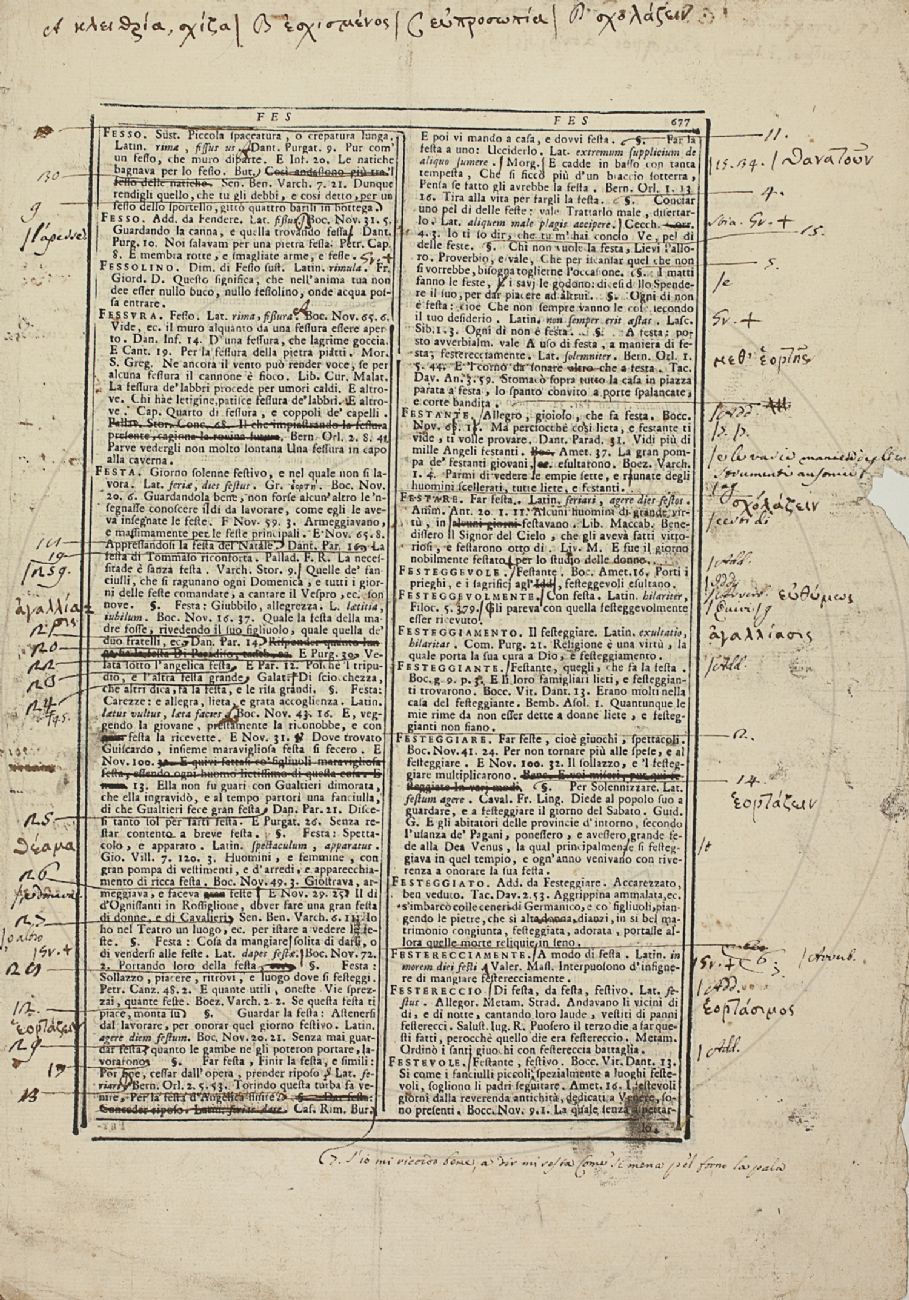 A κλειθρία, σχίζα | B ἐσχισμένος | C εὐπροσωπία | D σχολάζειν
FES
FES 677
FESSO. Sust. Piccola spaccatura, o crepatura lunga.
Latin. rima, fissus us. Dant. Purgat. 9. Pur com'
un fesso, che muro diparte. E Inf. 20. Le natiche
bagnava per lo fesso. But. Così andassono più tra'l
fesso delle natiche. Sen. Ben. Varch. 7. 21. Dunque
rendigli quello, che tu gli debbi, e così detto, per un
fesso dello sportello, gittò quattro barili in bottega.
FESSO. Add. da Fendere. Lat. fissus. Boc. Nov. 31. 5.
Guardando la canna, e quella trovando fessa. Dant.
Purg. 10. Noi salavam per una pietra fessa. Petr. Cap.
§. E membra rotte, e smagliate arme, e fesse.
FESSOLINO. Dim. di Fesso sust. Latin. rimula. Fr.
Giord. D. Questo significa, che nell'anima tua non
dee esser nullo buco, nullo fessolino, onde acqua pos-
sa entrare.
FESSURA. Fesso. Lat. rima, fissura. Boc. Nov. 65. 6.
Vide, ec. il muro alquanto da una fessura essere aper-
to. Dan. Inf. 14. D'una fessura, che lagrime goccia.
E Cant. 19. Per la fessura della pietra piatti. Mor.
S. Greg. Ne ancora il vento può render voce, se per
alcuna fessura il cannone è fioco. Lib. Cur. Malat.
La fessura de'labbri procede per umori caldi. E altro-
ve. Chi hae letigine, patisce fessura de'labbri. E altro-
ve. Cap. Quarto di fessura, e coppoli de' capelli.
Pallad. Stor. Conc. 68. Il che impiastrando la fessura
presente, cagiona la rovina futura. Bern. Orl. 2. 8. 41
Parve vedergli non molto lontana Una fessura in capo
alla caverna.
FESTA. Giorno solenne festivo, e nel quale non si la-
vora. Lat. feriæ, dies festus. Gr. ἑορτὴ. Boc. Nov.
20. 6. Guardandola bene, non forse alcun'altro le 'n-
segnasse conoscere il dì da lavorare, come egli le ave-
va insegnate le feste. E Nov. 59. 3. Armeggiavano,
e massimamente per le feste principali. E Nov. 65. 8.
Appressandosi la festa del Natale. Dant. Par. 16. La
festa di Tommaso riconforta. Pallad. F. R. La neces-
sitade è sanza festa. Varch. Stor. 9. Quelle de' fan-
ciulli, che si ragunano ogni Domenica, e tutti i gior-
ni delle feste comandate, a cantare il Vespro, ec. son
nove. §. Festa: Giubbilo, allegrezza. L. lætitia,
iubilum. Boc. Nov. 16. 37. Quale la festa della ma-
dre fosse, rivedendo il suo figliuolo, quale quella de'
duo fratelli, ec. Dan. Par. 14. Rispondere quanto lun-
ga fia la festa Di Paradiso, E Purg. 30. Ve-
lata sotto l'angelica festa. E Par. 12. Poichè 'l tripu-
dio, e l'altra festa grande. Galat. Di sciocchezza,
che altri dica, fa la festa, e le risa grandi. §. Festa:
Carezze: e allegra, lieta, e grata accoglienza. Latin.
lætus vultus, læta facies. Boc. Nov. 43. 16. E, veg-
gendo la giovane, prestamente la riconobbe, e con
gran festa la ricevette. E Nov. 31. 8. Dove trovato
Guiscardo, insieme maravigliosa festa si fecero. E
Nov. 100. 32. E quivi fattasi co' figliuoli maravigliosa
festa, essendo ogni huomo lietissimo di questa cosa. E
num. 13. Ella non fu guari con Gualtieri dimorata,
che ella ingravidò, e al tempo partorì una fanciulla,
di che Gualtieri fece gran festa. Dan. Par. 21. Disce-
si tanto sol per farti festa. E Purgat. 26. Senza re-
star contento a breve festa. §. Festa: Spetta-
colo, e apparato. Latin. spectaculum, apparatus.
Gio. Vill. 7. 120. 3. Huomini, e femmine, con
gran pompa di vestimenti, e d'arredi, e apparecchia-
mento di ricca festa. Boc. Nov. 49. 3. Giostrava, ar-
meggiava, e faceva gran feste. E Nov. 29. 25. Il dì
d'Ognissanti in Rossiglione, dover fare una gran festa
di donne, e di Cavalieri. Sen. Ben. Varch. 6. 11. Io
ho nel Teatro un luogo, ec. per istare a vedere le fe-
ste. §. Festa: Cosa da mangiare, solita di darsi, o
di vendersi alle feste. Lat. dapes festæ. Boc. Nov. 72.
2. Portando loro della festa. §. Festa:
Sollazzo, piacere, ritrovi, e luogo dove si festeggi.
Petr. Canz. 48. 2. E quante utili, oneste Vie sprez-
zai, quante feste. Boez. Varch. 2. 2. Se questa festa ti
piace, monta su. §. Guardar la festa: Astenersi
dal lavorare, per onorar quel giorno festivo. Latin.
agere diem festum. Boc. Nov. 20. 21. Senza mai guar-
dar festa, quanto le gambe ne gli poteron portare, la-
vorarono. §. Far festa, Finir la festa, e simili:
Por fine, cessar dall'opera, prender riposo. Lat. fe-
riari. Bern. Orl. 2. 5. 53. Torindo questa turba fa ve-
nire, Per la festa d'Angelica finire. §. Dar festa:
Conceder riposo. Latin. ferias dare. Cas. Rim. Bur.
E poi vi mando a casa, e dovvi festa. §. Far la
festa a uno: Ucciderlo. Lat. extremum supplicium de
aliquo sumere. Morg. E cadde in basso con tanta
tempesta, Che si ficcò più d'un braccio sotterra,
Pensa se fatto gli avrebbe la festa. Bern. Orl. 1. 13.
16. Tira alla vita per fargli la festa. §. Conciar
uno pel dì delle feste: vale Trattarlo male, disertar-
lo. Lat. aliquem male plagis accipere. Cecch.
4. 3. Io ti so dir, che tu m'hai concio Ve, pel dì
delle feste. §. Chi non vuole la festa, Lievi l'allo-
ro. Proverbio, e vale, Che per iscansar quel che non
si vorrebbe, bisogna toglierne l'occasione. §. I matti
fanno le feste, E i savj le godono: dicesi dello Spende-
re il suo, per dar piacere ad altrui. §. Ogni dì non
è festa: cioè Che non sempre vanno le cose secondo
il tuo desiderio. Latin. non semper erit æstas. Lasc.
Sib. 1. 3. Ogni dì non è festa. §. A festa: po-
sto avverbialm. vale A uso di festa, a maniera di fe-
sta; festerecciamente. Lat. solemniter. Bern. Orl. 1.
5. 44. E 'l corno da sonare altro che a festa. Tac.
Dav. An. 3. 59. Stomacò sopra tutto la casa in piazza
parata a festa, lo spanto convito a porte spalancate,
e corte bandita.
FESTANTE. Allegro, gioioso, che fa festa. Bocc.
Nov. 68. 13. Ma perciocchè così lieta, e festante ti
vide, ti volle provare. Dant. Parad. 31. Vidi più di
mille Angeli festanti. Boc. Amet. 37. La gran pom-
pa de' festanti giovani, esultarono. Boez. Varch.
1. 4. Parmi di vedere le empie sette, e raunate degli
huomini scellerati, tutte liete, e festanti.
FESTARE. Far festa. Latin. feriari, agere dies festos.
Anim. Ant. 20. 1. 11. Alcuni huomini di grande vir-
tù, in alcuni giorni festavano. Lib. Maccab. Bene-
dissero il Signor del Cielo, che gli aveva fatti vitto-
riosi, e festarono otto dì. Liv. M. E fue il giorno
nobilmente festato per lo studio delle donne.
FESTEGGEVOLE. Festante. Boc. Amet. 16. Porti i
prieghi, e i sagrifici agl'Iddj, festeggevoli esultano.
FESTEGGEVOLMENTE. Con festa. Latin. hilariter.
Filoc. 5. 379. Gli pareva con quella festeggevolmente
esser ricevuto.
FESTEGGIAMENTO. Il festeggiare. Latin. exultatio,
hilaritas. Com. Purg. 21. Religione è una virtù, la
quale porta la sua cura a Dio, e festeggiamento.
FESTEGGIANTE. Festante, quegli, che fa la festa.
Boc. g. 9. p. 3. E li loro famigliari lieti, e festeggian-
ti trovarono. Bocc. Vit. Dant. 13. Erano molti nella
casa del festeggiante. Bemb. Asol. 1. Quantunque le
mie rime da non esser dette a donne liete, e festeg-
gianti non siano.
FESTEGGIARE. Far feste, cioè giuochi, spettacoli.
Boc. Nov. 41. 24. Per non tornare più alle spese, e al
festeggiare. E Nov. 100. 32. Il sollazzo, e 'l festeg-
giare multiplicarono.
§. Per Solennizzare. Lat.
festum agere. Caval. Fr. Ling. Diede al popolo suo a
guardare, e a festeggiare il giorno del Sabato. Guid.
G. E gli abitatori delle provincie d'intorno, secondo
l'usanza de' Pagani, ponessero, e avessero grande fe-
de alla Dea Venus, la qual principalmente si festeg-
giava in quel tempio, e ogn'anno venivano con rive-
renza a onorare la sua festa.
FESTEGGIATO. Add. da Festeggiare. Accarezzato,
ben veduto. Tac. Dav. 2. 53. Aggrippina ammalata, ec.
s'imbarcò colle ceneri di Germanico, e co'figliuoli, pian-
gendo le pietre, che sì alta donna, dianzi, in sì bel ma-
trimonio congiunta, festeggiata, adorata, portasse al-
lora quelle morte reliquie in seno.
FESTERECCIAMENTE. A modo di festa. Latin. in
morem diei festi. Valer. Mass. Interpuosono d'infigne-
re di mangiare festerecciamente.
FESTERECCIO. Di festa, da festa, festivo. Lat. fe-
stus. Allegor. Metam. Strad. Andavano li vicini di
dì, e di notte, cantando loro laude, vestiti di panni
festerecci. Salust. Iug. R. Puosero il terzo die a far que-
sti fatti, perocchè quello die era festereccio. Metam.
Ordinò i santi giuochi con festereccia battaglia.
FESTEVOLE. Festante, festivo. Bocc. Vit. Dant. 13.
Sì come i fanciulli piccoli, spezialmente a luoghi feste-
voli, sogliono li padri seguitare. Amet. 16. I festevoli
giorni dalla reverenda antichità, dedicati a Venere, so-
no presenti. Bocc. Nov. 9. 1. La quale senza aspettar-
lo,
130
9
19
259
ἀγαλλία
20
22
23
24
25
θέαμα
26
27
29
12
ἑορτάζειν
29
11.
15.34. | θανατοῦν
4.
15.
5.
μεθ' ἑορτῆς
σχολάζειν
| Add.
εὐθύμως
ἀγαλλίασις
| Add.
2.
14
ἑορτάζειν
6.
| Add.
ἑορτάσιμος
| Add.
S'io mi ricordo bene, a dir mi resta Come si mena pel forno la pala